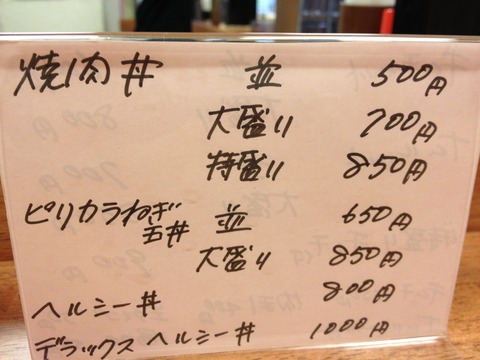 焼肉丼 並 500円
大盛り 700円
特盛り 850円
ピリカラねぎ 並 650円
玉丼
大盛り 850円
ヘルシー丼 800円
デラックスヘルシー丼 1000円